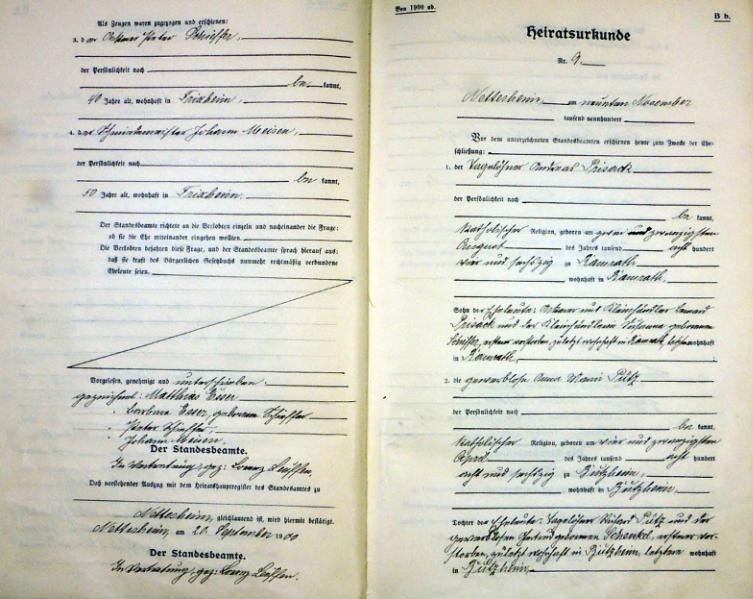 Als Zeugen waren zugezogen und erschienen:
3. der Peter Scheiffer,
der Persönlichkeit nach
be kannt,
40 Jahre alt, wohnhaft in Frixheim,
4. der Schmiedemeister Johann Meisen,
der Persönlichkeit nach
be kannt,
50 Jahre alt, wohnhaft in Frixheim.
Der Standesbeamte richtete an die Verlobten einzeln und nacheinander die Frage:
ob sie die Ehe miteinander eingehen wollten.
Die Verlobten bejahten diese Frage, und der Standesbeamte sprach hierauf aus:
daß sie kraft des Bürgerlichen Gesetzbuchs nunmehr rechtmäßig verbundene
Eheleute seien.
Vorgelesen, genehmigt und unterschrieben.
gezeichnet: Matthias Esser
" Barbara Esser, geborenen
" Peter
" Johann Meisen.
Der Standesbeamte.
In Vertretung, gez: Lorenz
Daß vorstehender Auszug mit dem Heiratshauptregister des Standesamtes zu
Nettesheim, gleichlautend ist, wird hiermit bestätigt.
Nettesheim, am 20. September 1900
Der Standesbeamte.
In Vertretung, gez: Lorenz
Von 1900 ab.
B b.
Heiratsurkunde
Nr. 9.
Nettesheim, am neunten November
tausend neunhundert
Vor dem unterzeichneten Standesbeamten erschienen heute zum Zwecke der Ehe-
schließung:
1. der Tagelöhner Andreas Prisack
der Persönlichkeit nach
be kannt,
katholischer Religion, geboren am zwei und zwanzigsten
August des Jahres tausend acht hundert
vier und sechzig in Ramrath
wohnhaft in Ramrath.
Sohn der Eheleute: und Kleinhändler
Prisack und der Kleinhändlerin geborenen
ersterer verstorben, zuletzt wohnhaft in Ramrath, letztere wohnhaft
in Ramrath.
2. die gewerblose Anna Maria Pütz
der Persönlichkeit nach
be kannt,
katholischer Religion, geboren am vier und zwanzigsten
April des Jahres tausend acht hundert
acht und sechzig in Bützheim,
wohnhaft in Bützheim.
Tochter der Eheleute: Tagelöhner Pütz und der
gewerblosen Gertrud geborenen Schenkel, ersterer ver-
storben, zuletzt wohnhaft in Bützheim, letztere wohnhaft
in Bützheim.